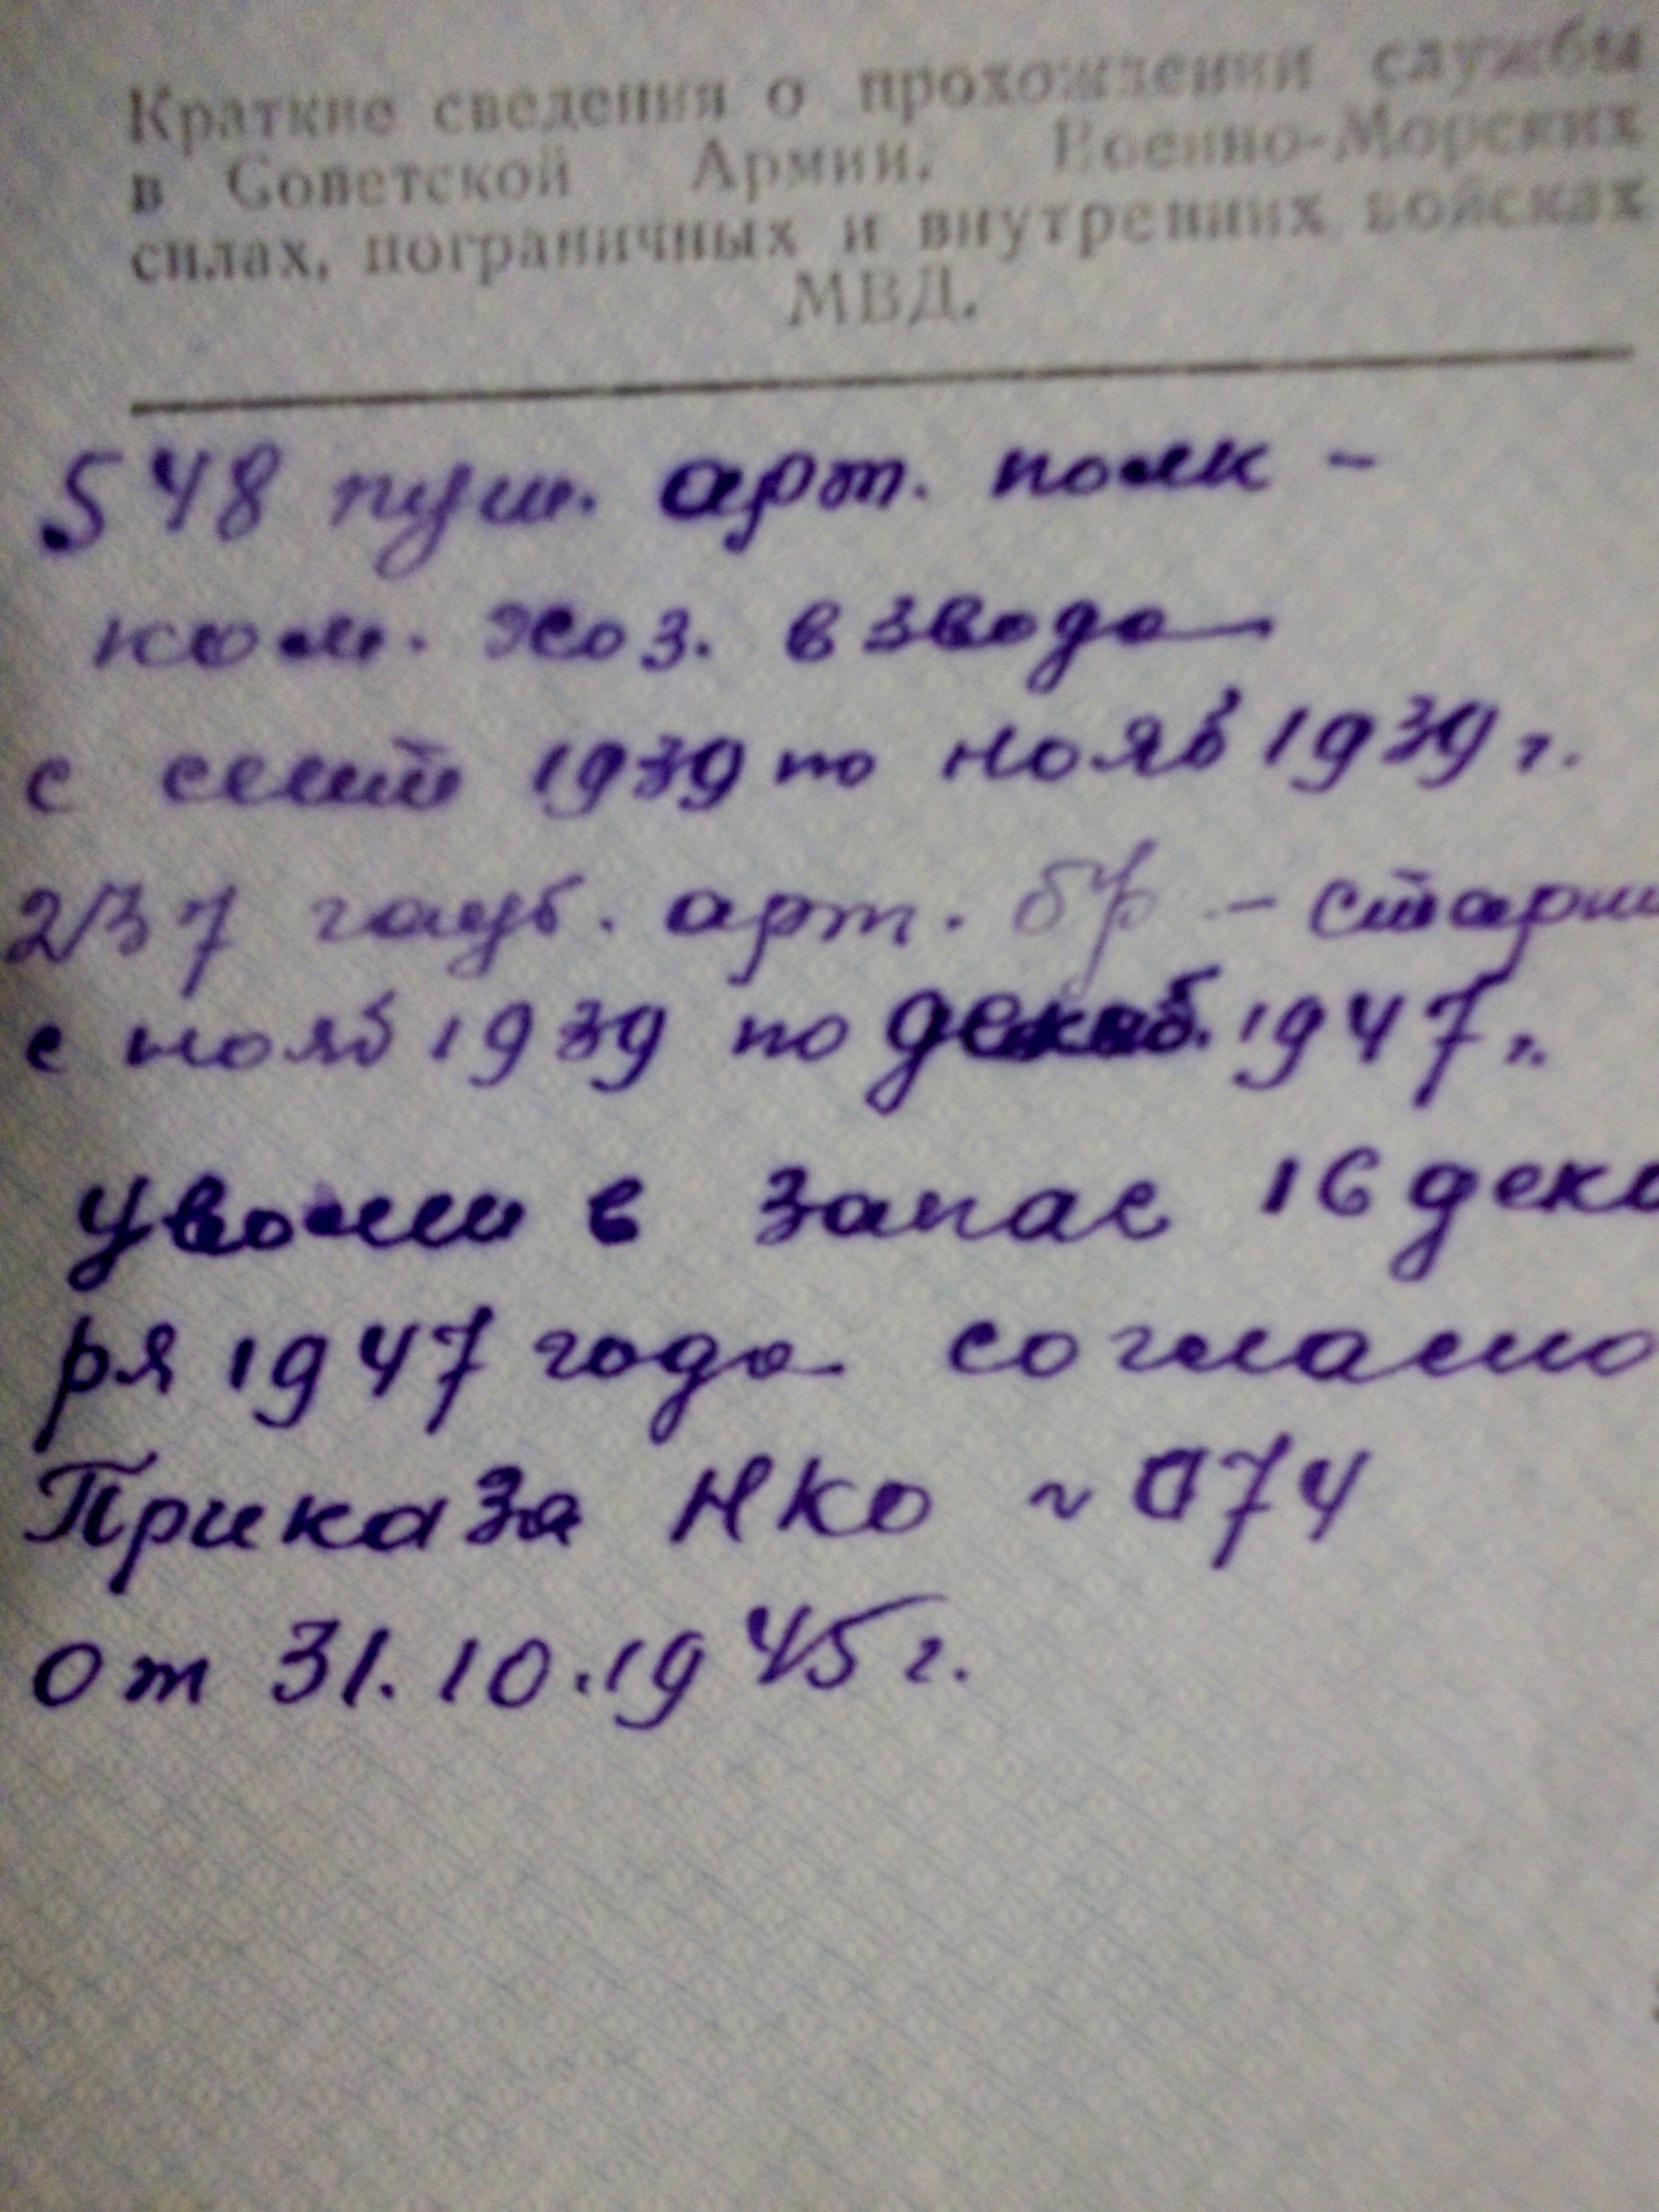 Краткие сведения о прохождении службы
в Советской Армии, Военно-Морских
силах, пограничных и внутренних войсках
МВД.
548 пуш. арт. полк -
ком. хоз. взвода
с сент 1939 по нояб 1939 г.
237 гауб. арт. бр - старши
с нояб 1939 по декаб. 1947 г.
Уволен в запас 16 дека
ря 1947 года согласно
Приказа НКО ~ 074
от 31.10.1945 г.